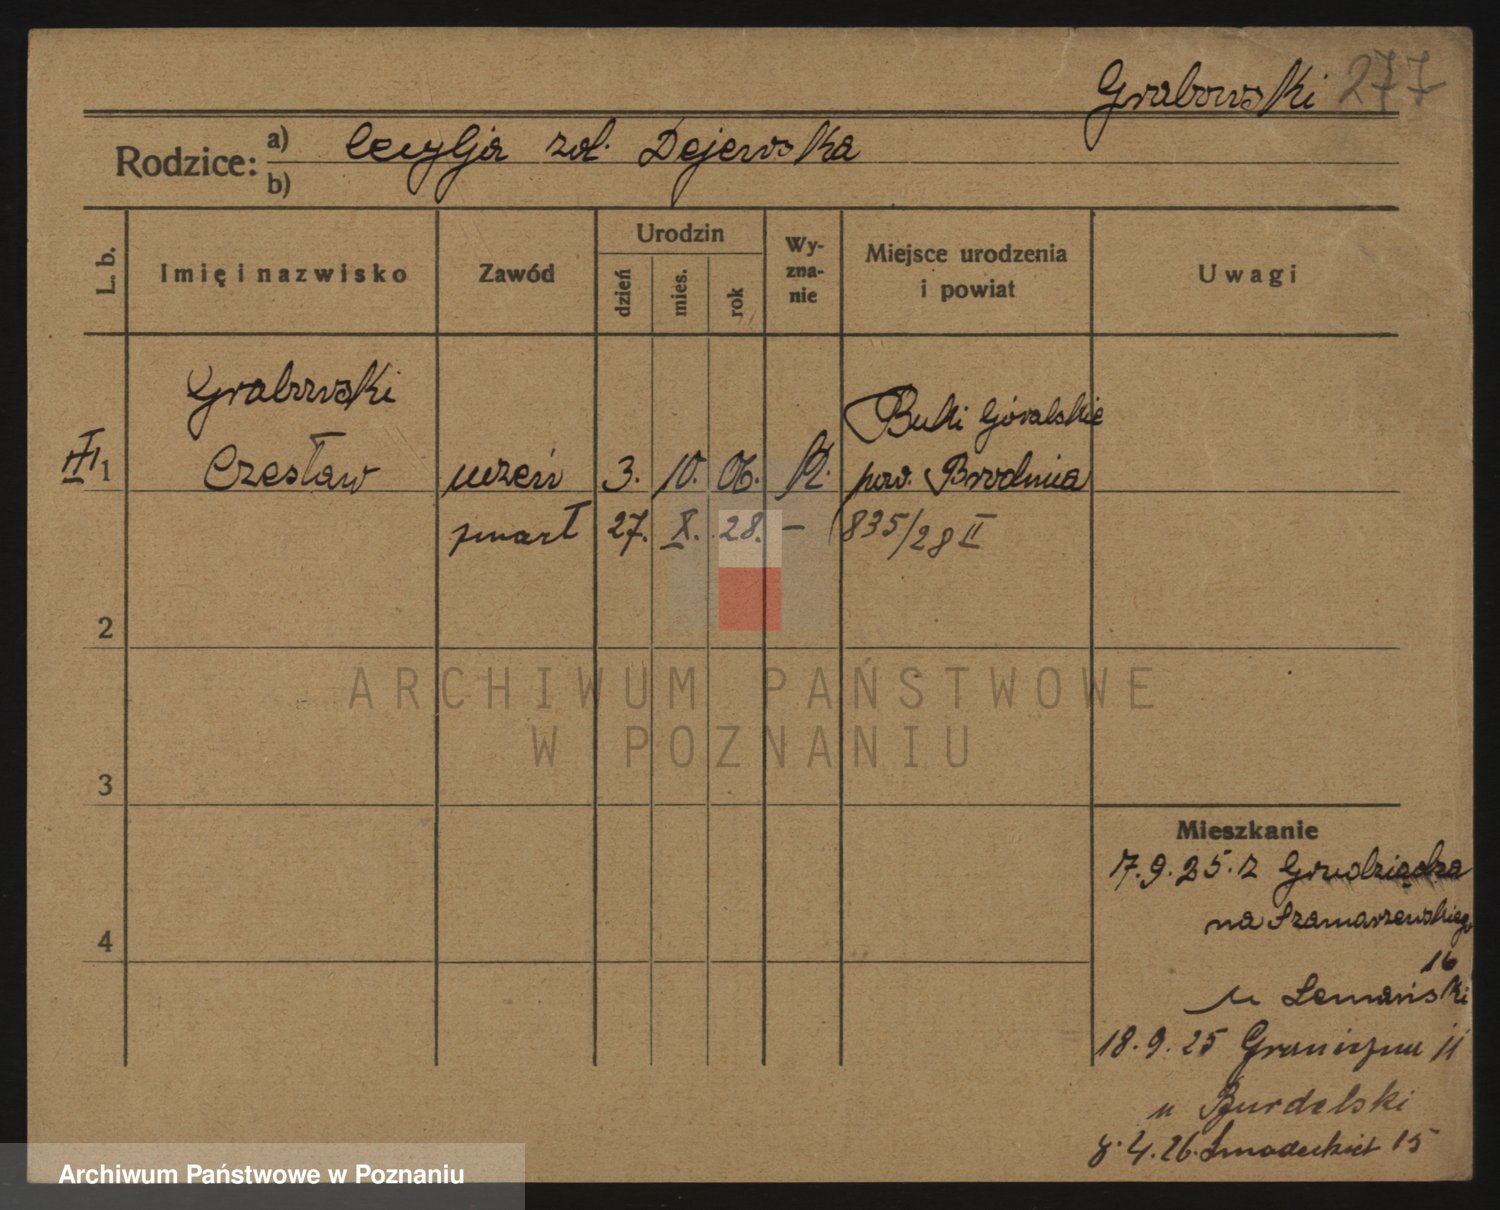 Grabowski 277
Rodzice: a) Cecylja zd. Dejewska
b)
L. b.
Imię i nazwisko
Zawód
Urodzin
dzień
mies.
rok
Wy-
zna-
nie
Miejsce urodzenia
i powiat
Uwagi
Grabowski
Czesław
III 1
uczeń
3. 10. 06.
K.
Buki Góralskie
pow. Brodnica
zmarł 27. X. 28. – 835/28 II
2
3
4
ARCHIWUM PAŃSTWOWE
W POZNANIU
Mieszkanie
17.9.25. z Grudziądza
na Szamarzewskiego
16
u Lemański
18.9.25 Graniczna 11
u Burdelski
8.4.26. 15
Archiwum Państwowe w Poznaniu